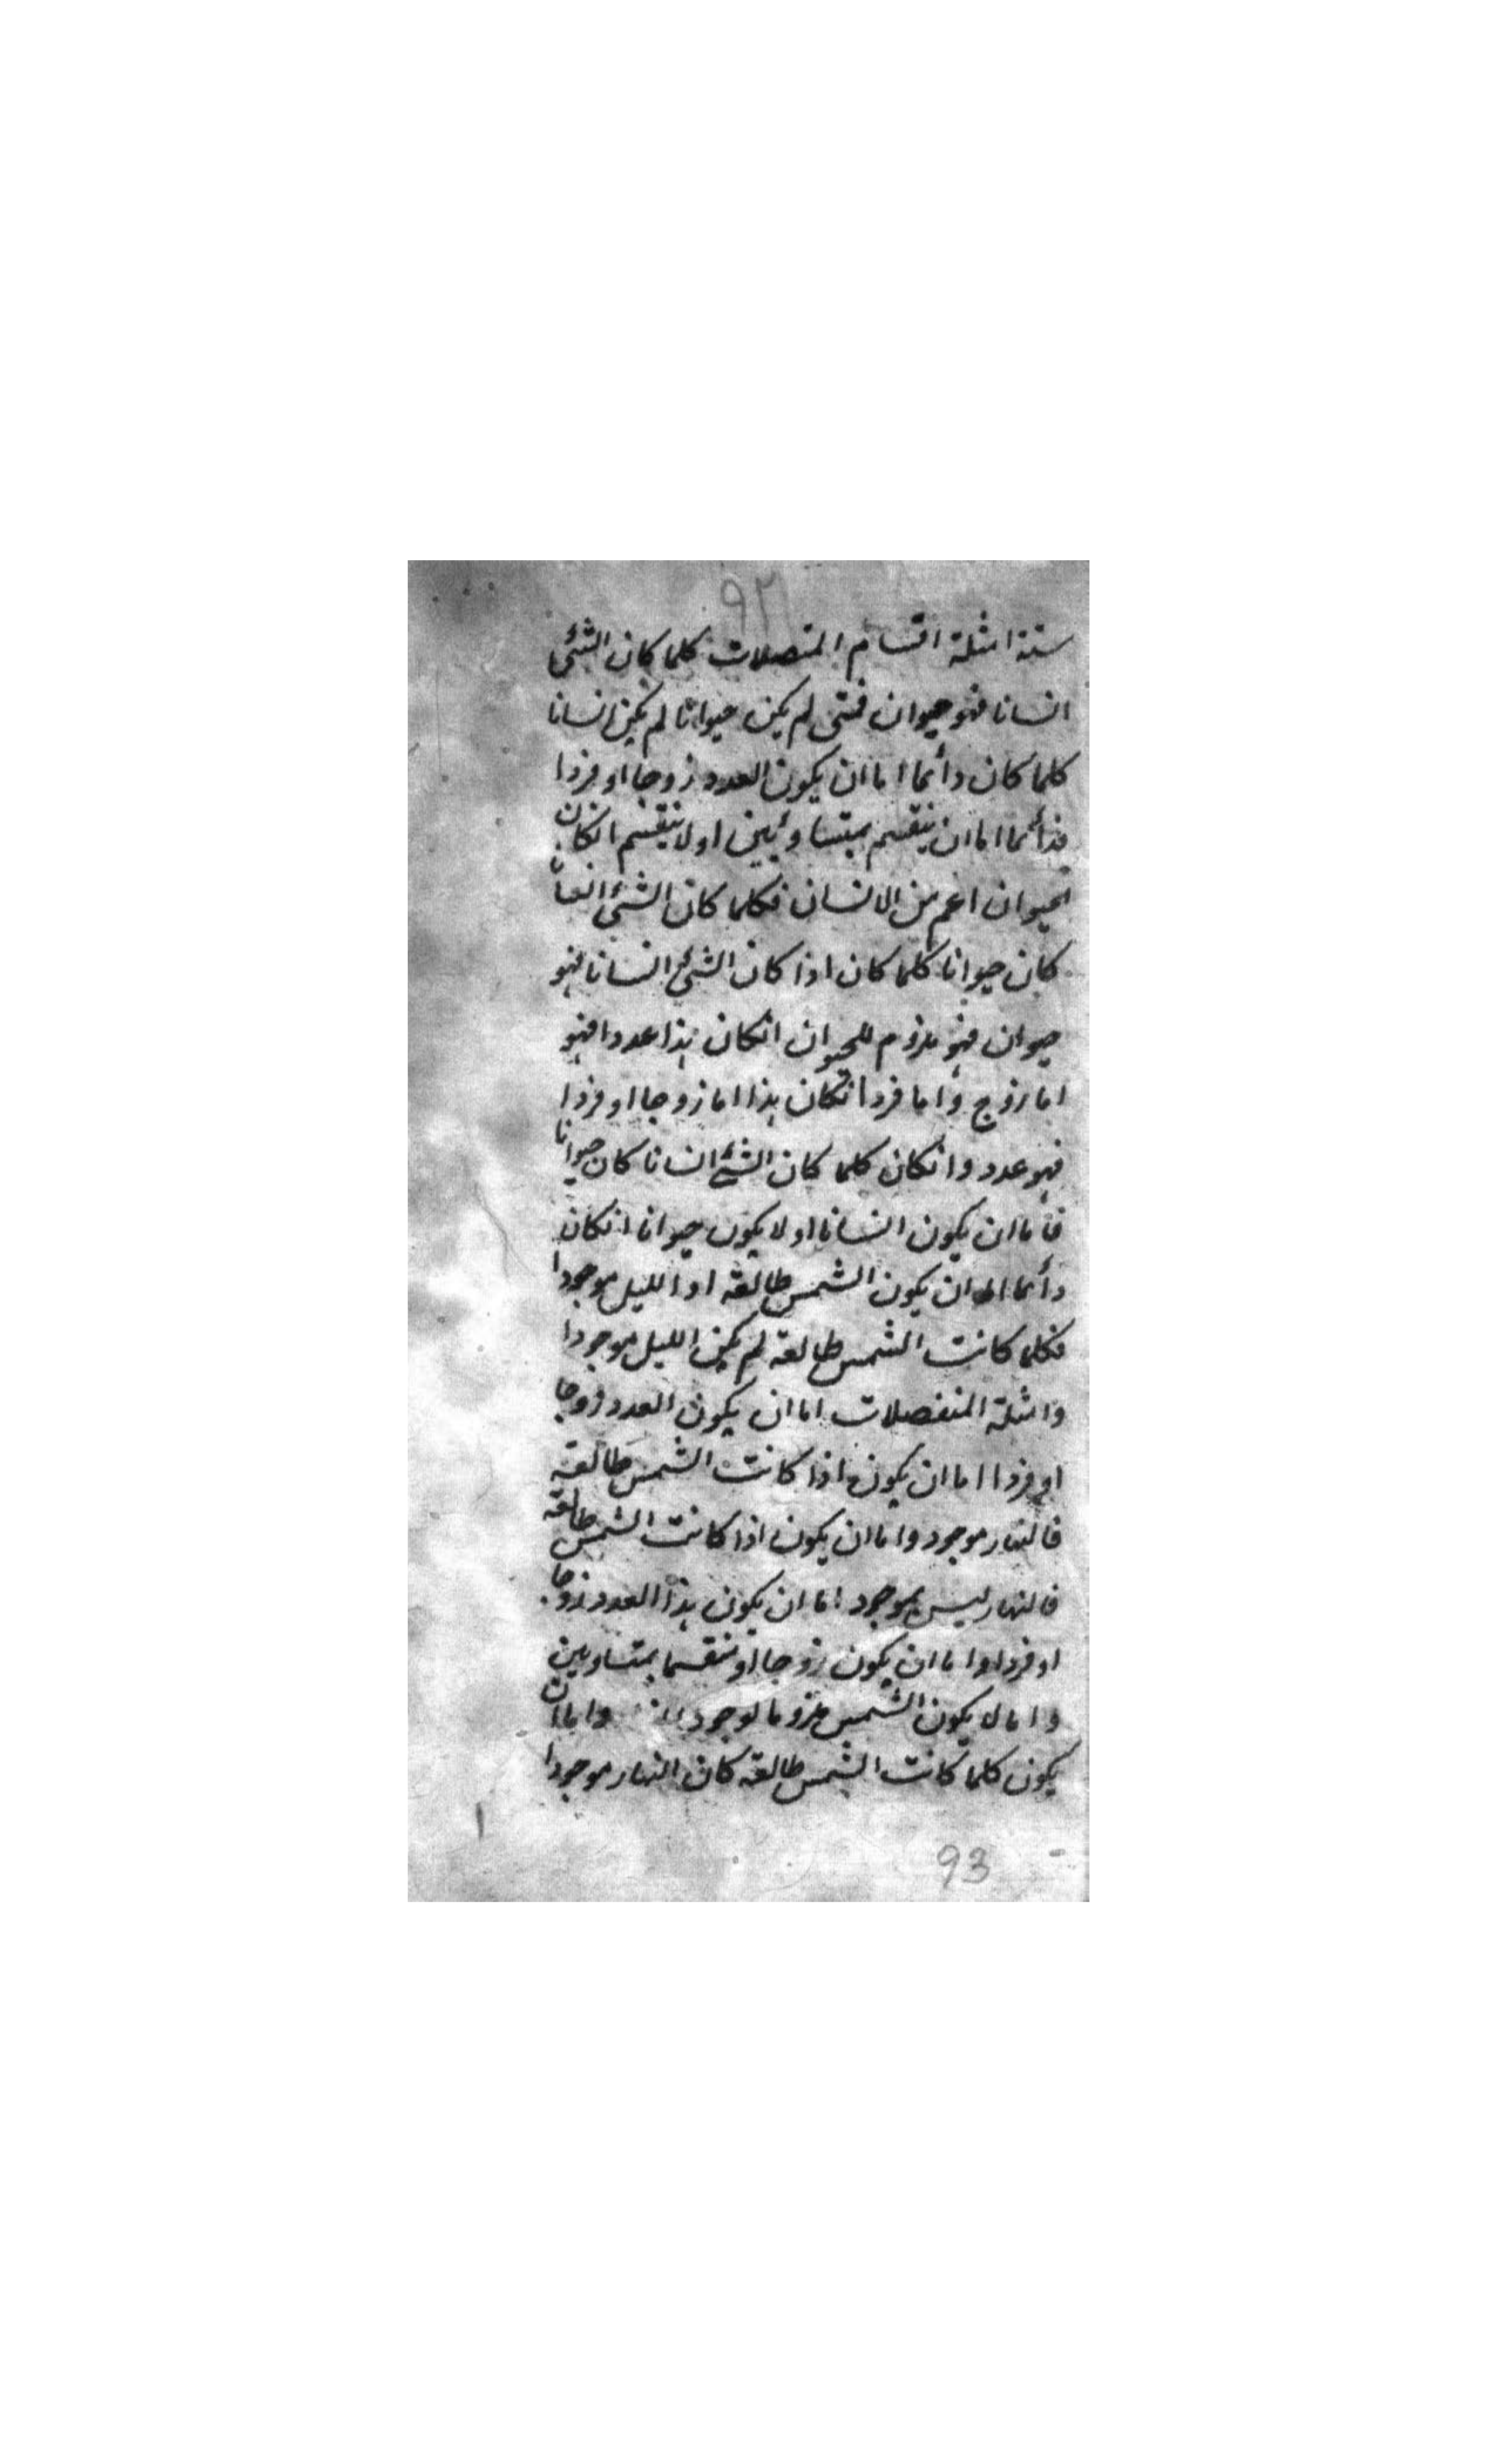 ٩٢
ستة امثلة اقسام المتصلات كلما كان الشئ
انسانا فهو حيوان فمتى لم يكن حيوانا لم يكن انسانا
كلما كان دائما اما ان يكون العدد زوجا او فردا
فدائما اما ان ينقسم بمتساويين او لا ينقسم انكان
الحيوان اعم من الانسان فكلما كان الشئ انسانا
كان حيوانا كلما كان اذا كان الشئ انسانا فهو
حيوان فهو ملزوم للحيوان انكان هذا عددا فهو
اما زوج واما فرد انكان هذا اما زوجا او فردا
فهو عدد وانكان كلما كان الشئ انسانا كان حيوانا
فاما ان يكون انسانا او لا يكون حيوانا انكان
دائما اما ان يكون الشمس طالعة او الليل موجودا
فكلما كانت الشمس طالعة لم يكن الليل موجودا
وامثلة المنفصلات اما ان يكون العدد زوجا
او فردا اما ان يكون اذا كانت الشمس طالعة
فالنهار موجود واما ان يكون اذا كانت الشمس طالعة
فالنهار ليس بموجود اما ان يكون هذا العدد زوجا
او فردا واما ان يكون زوجا او منقسما بمتساويين
واما لا يكون الشمس ملزوما لوجود واما ان
يكون كلما كانت الشمس طالعة كان النهار موجودا
93